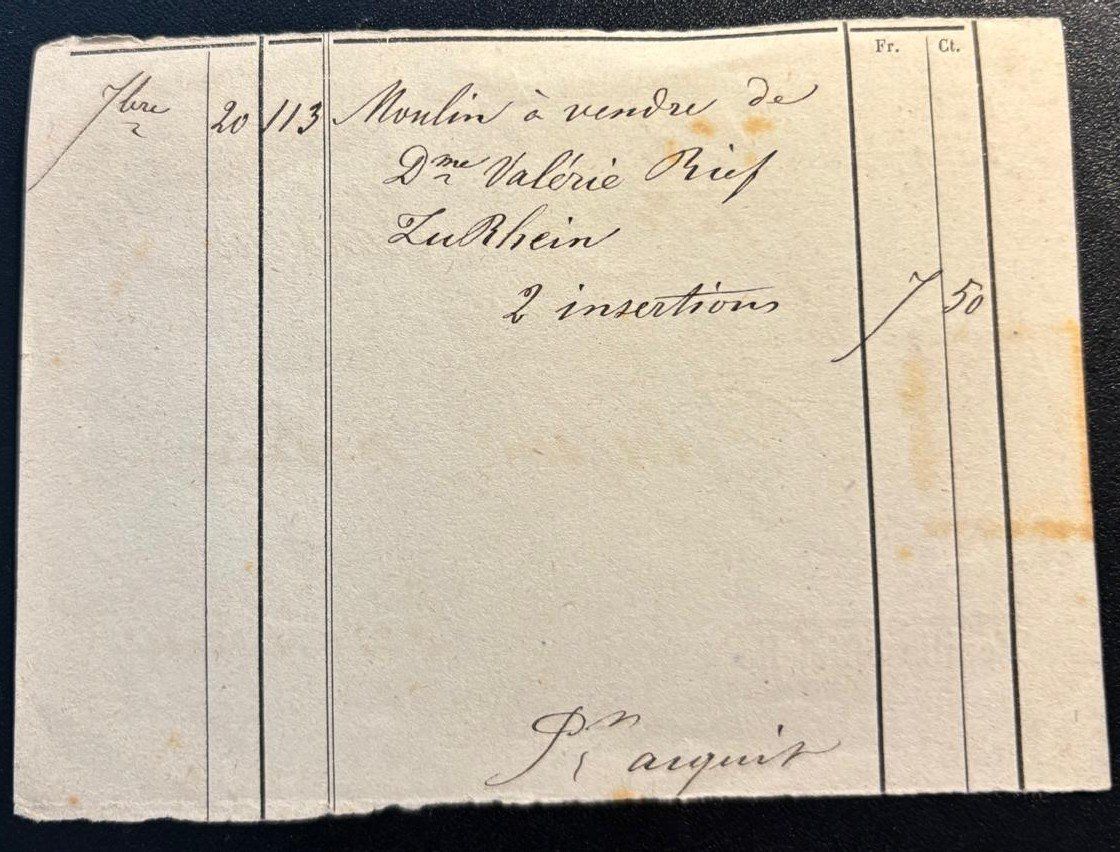 Fr. Ct.
7bre 20 113 Moulin à vendre de
Dme Valérie Rief
ZuRhein
2 insertions 7 50
Pr acquit